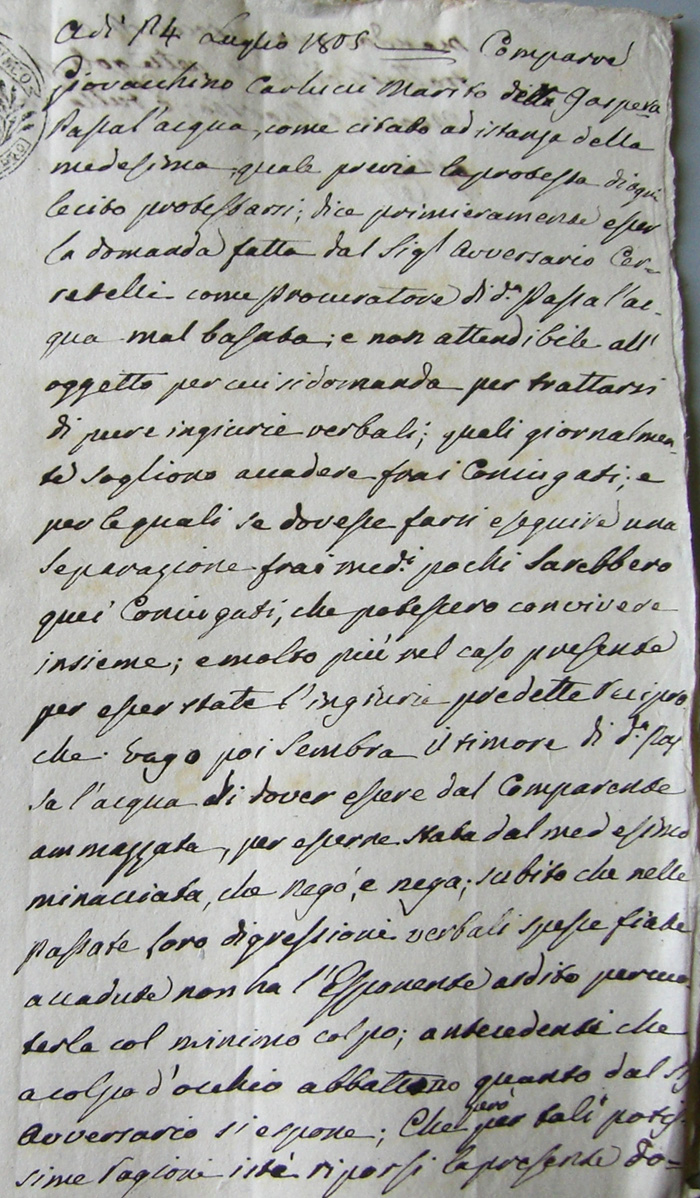 Adì 14 Luglio 1805 —— Comparve
Giovacchino Carlucci Marito della Gaspera
Passal'acqua, come citato ad istanza della
medesima, quale previa la protesta di ogni
lecito protestarsi; dice primieramente esser
la domanda fatta dal Sig.r Avversario Cer-
retelli come Procuratore di d.a Passa l'ac-
qua mal basata; e non attendibile all'
oggetto per cui si domanda per trattarsi
di pure ingiurie verbali; quali giornalmen-
te sogliono accadere frai Coniugati; e
per le quali se dovesse farsi eseguire una
separazione frai med.i pochi sarebbero
quei Coniugati, che potessero convivere
insieme; e molto più nel caso presente
per esser state l'ingiurie predette recipro
che. Vago poi sembra il timore di d.a Pas
sa l'acqua di dover essere dal Comparente
ammazzata, per esserne stata dal medesimo
minacciata, che negò, e nega; subito che nelle
passate loro digressioni verbali spesse fiate
accadute non ha l'Esponente ardito percuo
terla col minimo colpo; antecedenti che
a colpo d'occhio abbattono quanto dal Sig
Avversario si espone; Che però per tali potis-
sime ragioni istà riporsi la presente do-